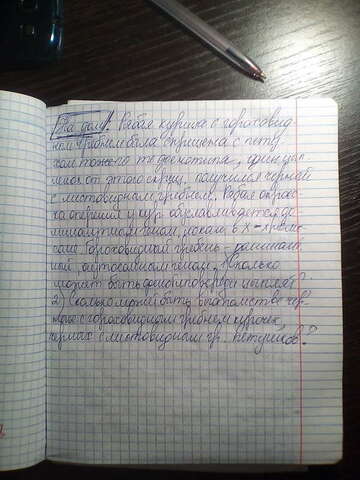 На дом. Рябая курица с гороховид
ным гребнем была скрещена с пету
хом того же фенотипа, один цып
ленок от этого скрещ. получился черный
с листовидным гребнем. Рябая окрас
ка оперения у кур обуславливается до
минантным геном, локал. в X-хромо
соме Гороховидный гребень - доминант
ный, аутосомным геном. 1) Сколько
может быть фенотипов среди цыплят?
2) Сколько может быть в потомстве чер
ных с гороховидным гребнем курочек,
черных с листовидным гр. петушков?